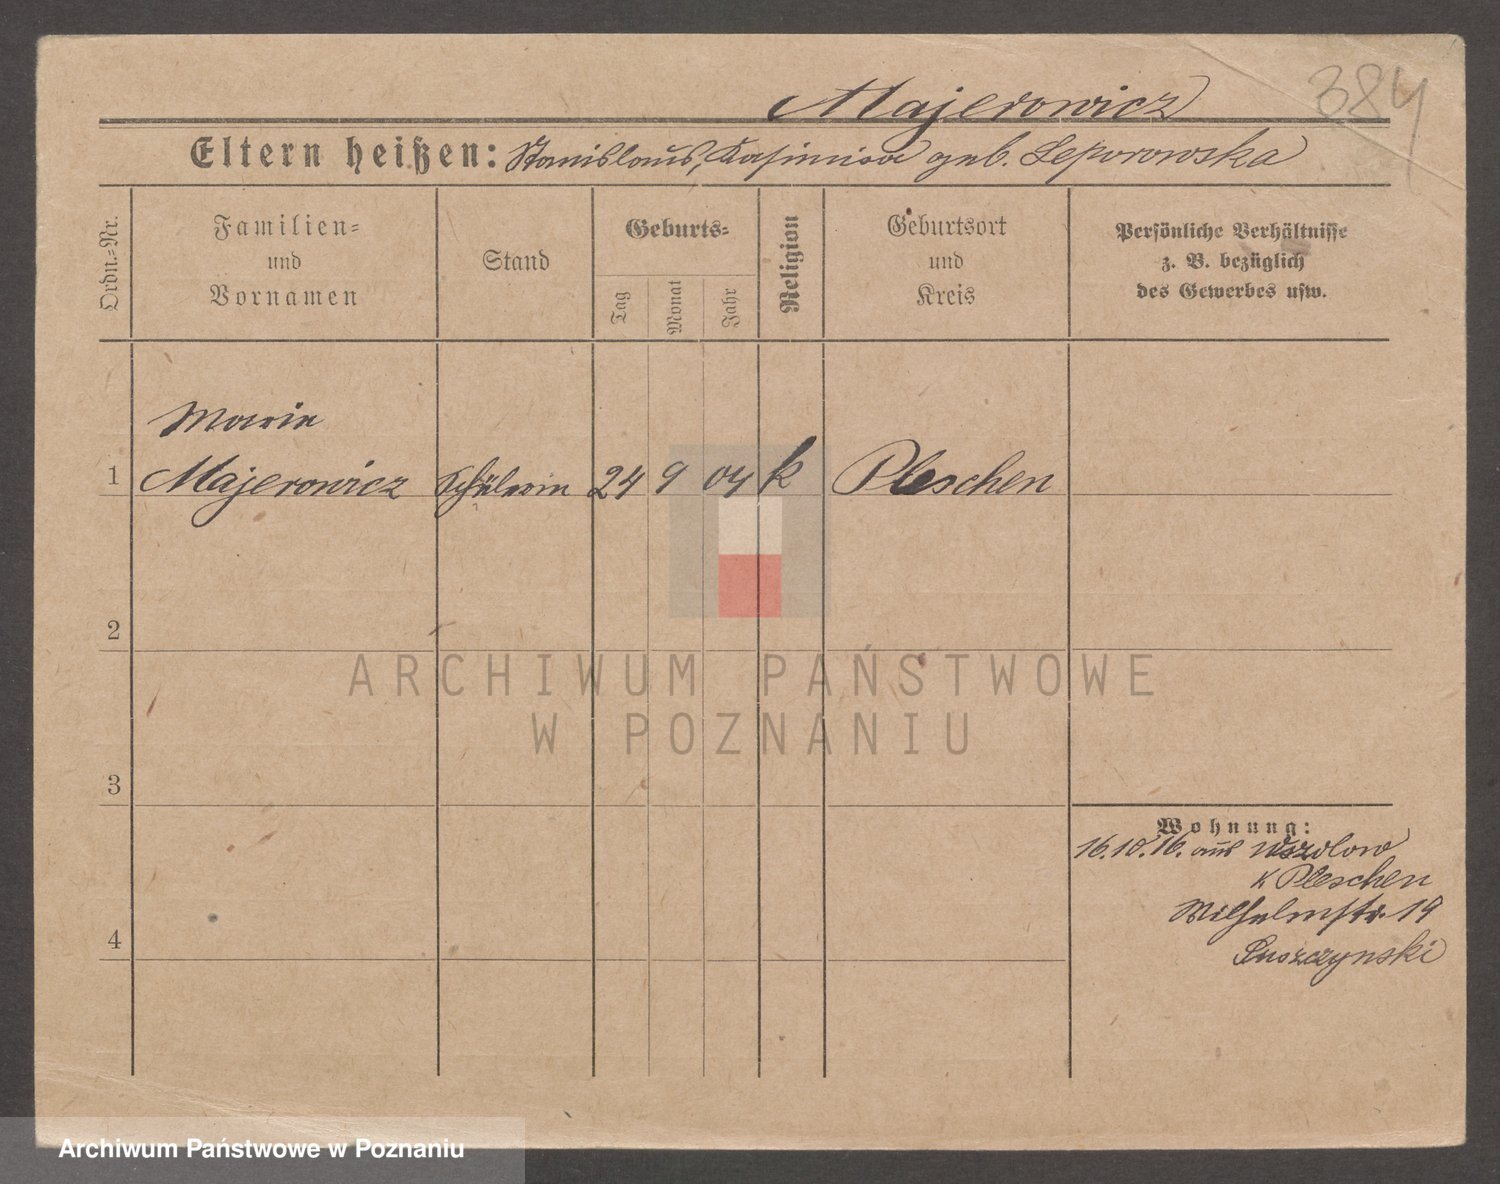 384
Majerowicz
Eltern heißen: Stanislaus, Kasimira geb. Leporowska
Ordn.-Nr.
Familien-
und
Vornamen
Stand
Geburts-
Tag
Monat
Jahr
Religion
Geburtsort
und
Kreis
Persönliche Verhältnisse
z. B. bezüglich
des Gewerbes usw.
Marie
1 Majerowicz Schülerin 24 9 04 k Pleschen
2
ARCHIWUM PAŃSTWOWE
W POZNANIU
3
Wohnung:
16.10.16. aus
K Pleschen
Wilhelmstr. 19
4
Archiwum Państwowe w Poznaniu